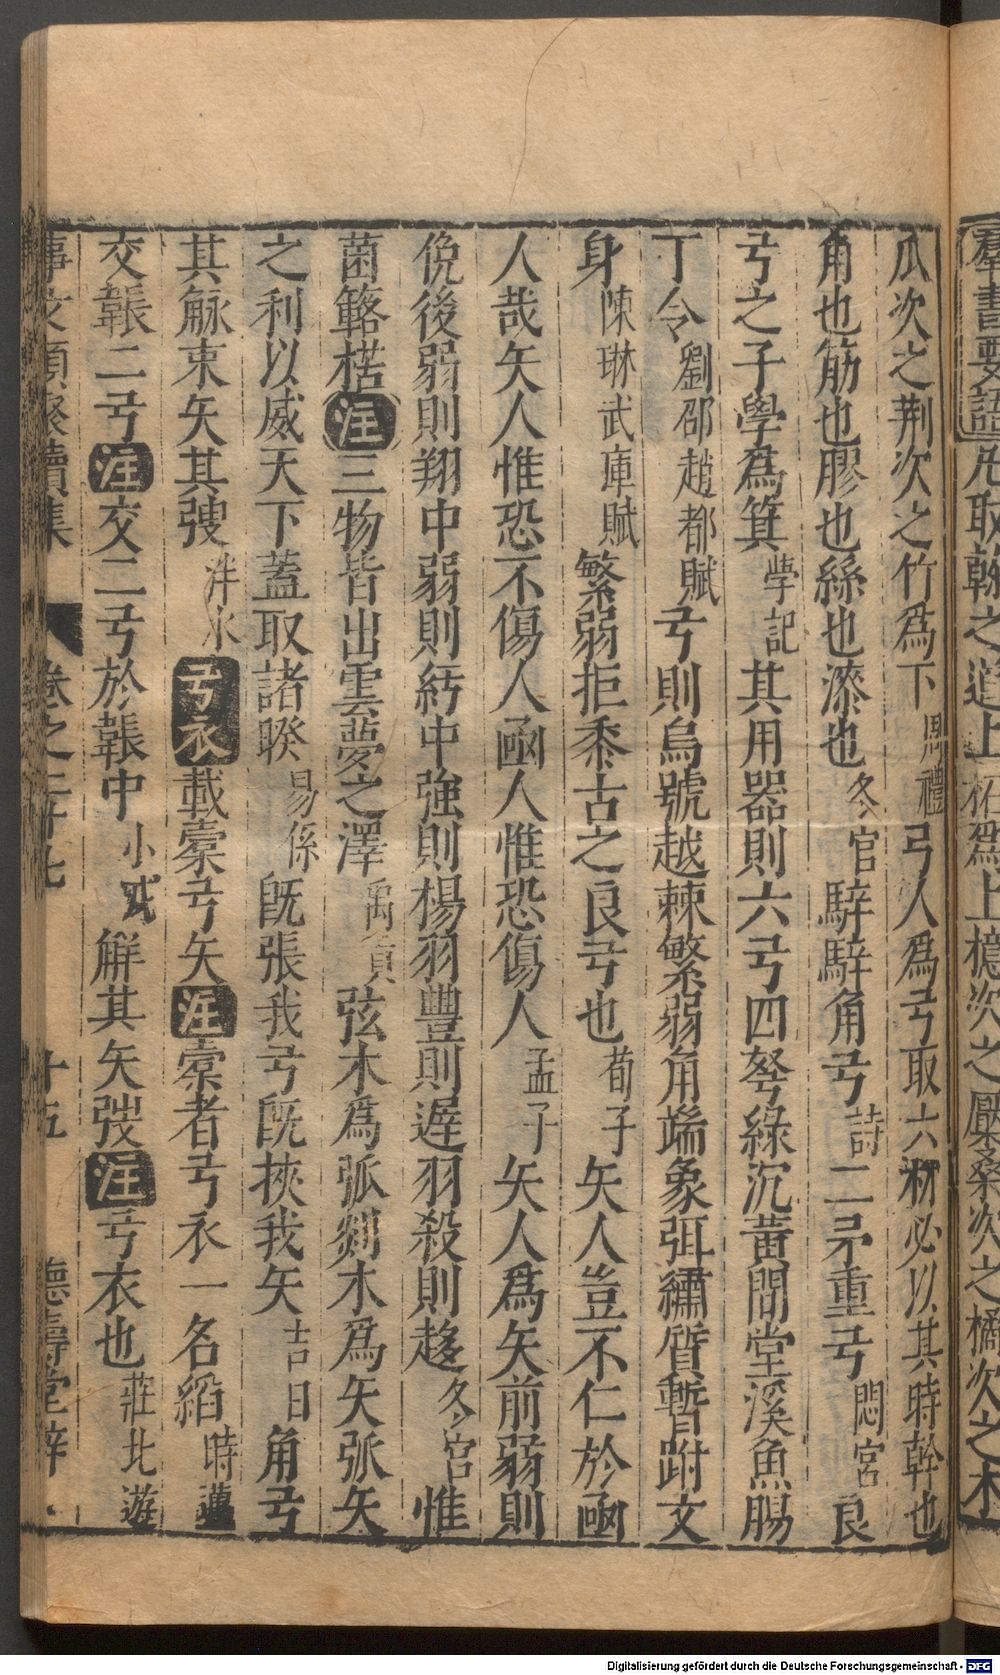 羣書要語凡取幹之道上柘爲上檍次之檿桑次之橘次之木
瓜次之荆次之竹爲下周禮弓人爲弓取六材必以其時幹也
角也筋也膠也絲也漆也冬官騂騂角弓詩二矛重弓閟宮良
弓之子學爲箕學記其用器則六弓四弩綠沉黃間堂溪魚腸
丁令劉邵趙都賦弓則烏號越棘繁弱角端象弭繡質晳跗文
身陳琳武庫賦繁弱拒黍古之良弓也荀子矢人豈不仁於函
人哉矢人惟恐不傷人函人惟恐傷人孟子矢人爲矢前弱則
俛後弱則翔中弱則紆中強則楊羽豐則遲羽殺則趮冬官惟
菌簵楛注三物皆出雲夢之澤禹貢弦木爲弧剡木爲矢弧矢
之利以威天下蓋取諸暌易係旣張我弓旣挾我矢吉日角弓
其觩束矢其搜泮水弓衣載櫜弓矢注櫜者弓衣一名縚時邁
交韔二弓注交二弓於韔中小戎解其矢弢注弓衣也莊北遊
事文類聚續集 卷之二十七 十五 德壽堂梓
Digitalisierung gefördert durch die Deutsche Forschungsgemeinschaft - DFG